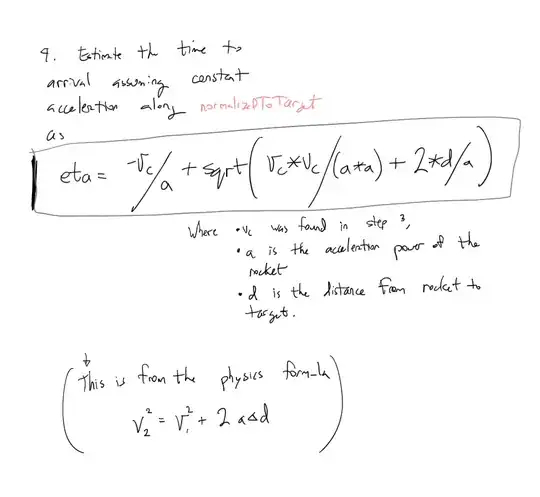 4. Estimate the time to
arrival assuming constat
acceleration along normalizeDToTarget
as
eta = -Vc/a + sqrt(Vc*Vc/(a*a) + 2*d/a)
Where • Vc was found in step 3,
• a is the acceleration power of the
rocket
• d is the distance from rocket to
target.
(This is from the physics formula
V₂² = V₁² + 2aΔd)